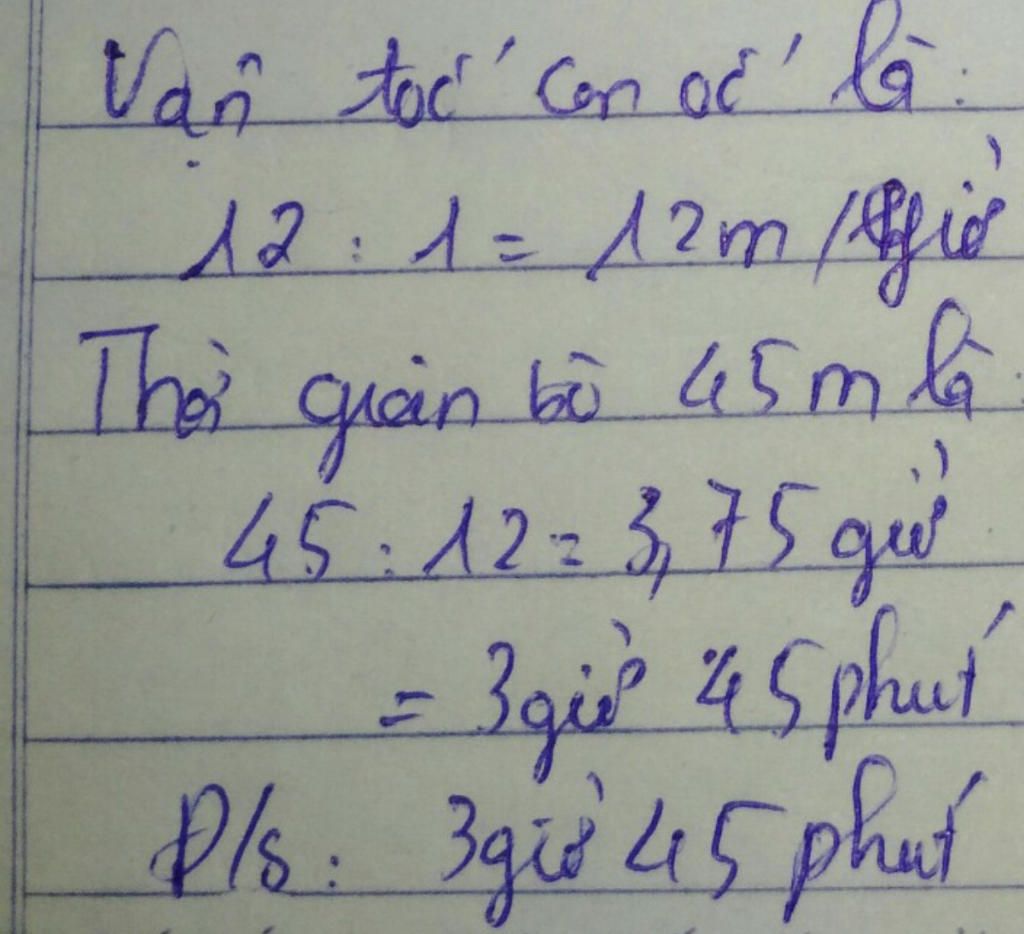 Vận tốc con ốc là:
12 : 1 = 12m/giờ
Thời gian bò 45m là:
45 : 12 = 3,75 giờ
= 3giờ 45phút
Đ/s: 3giờ 45phút